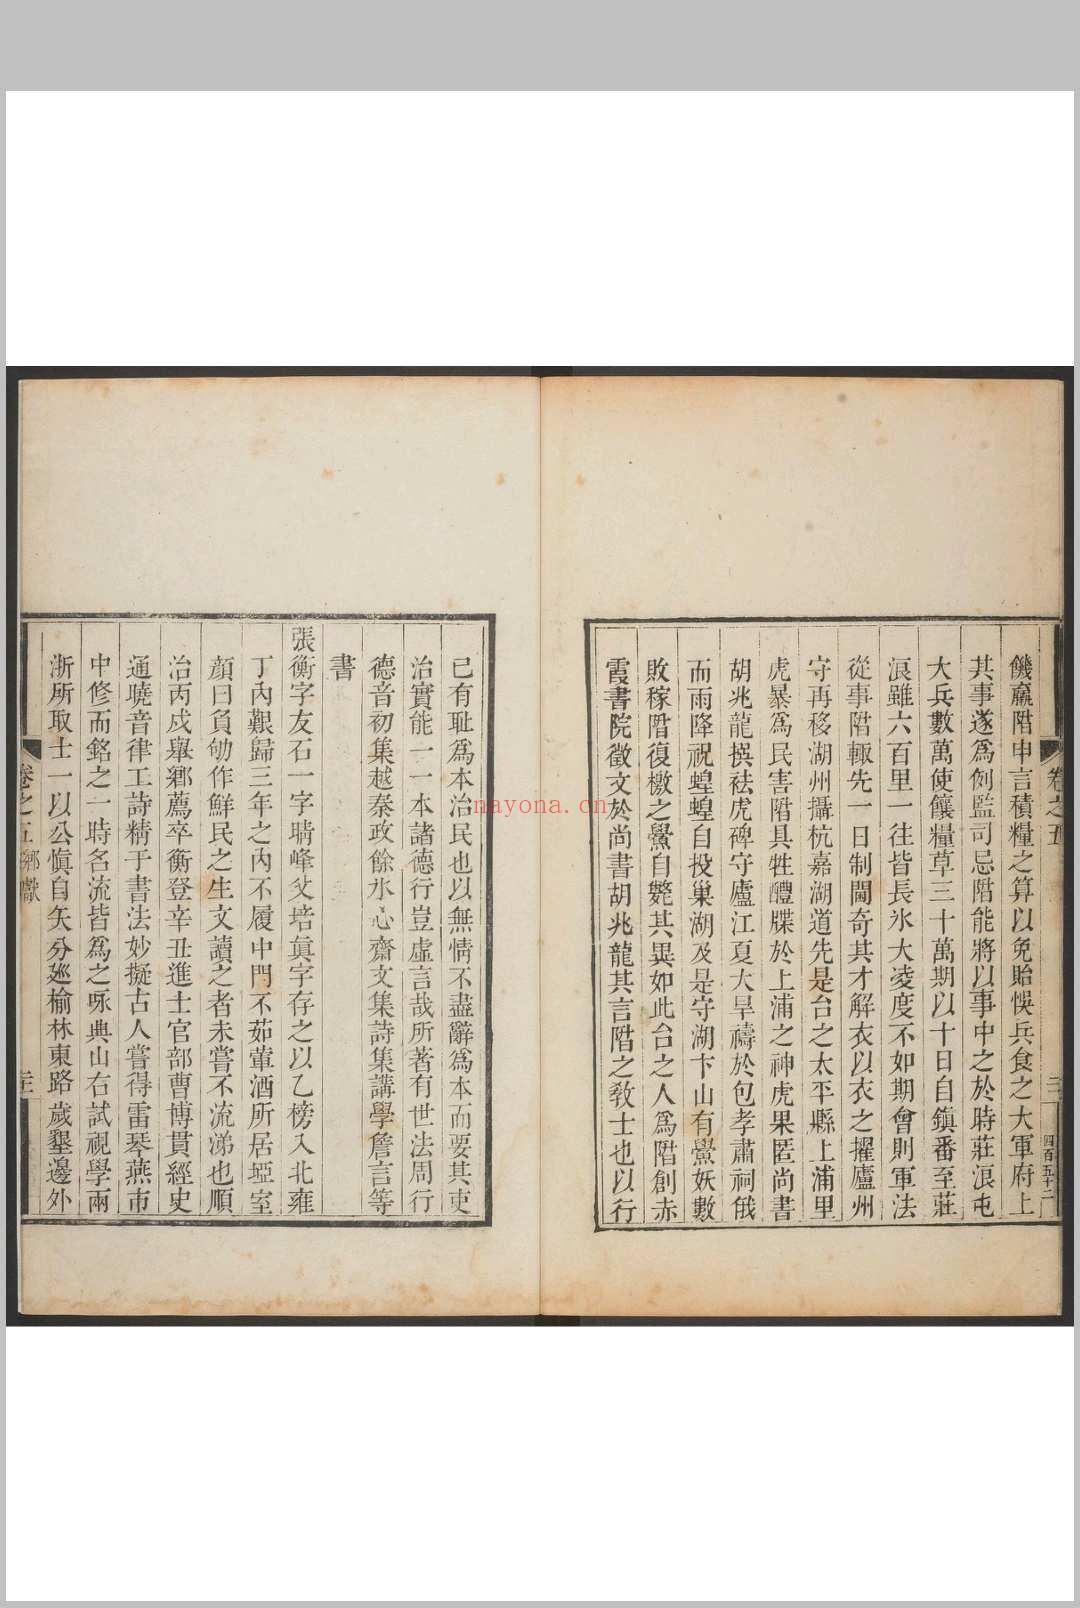 饑羸階申言積糧之算以免貽悞兵食之大軍府上
其事遂爲例監司忌階能將以事中之於時莊浪屯
大兵數萬使饟糧草三十萬期以十日自鎭番至莊
浪雖六百里一往皆長氷大凌度不如期會則軍法
從事階輙先一日制閫奇其才解衣以衣之擢廬州
守再移湖州攝杭嘉湖道先是台之太平縣上浦里
虎暴爲民害階具牲醴牒於上浦之神虎果匿尚書
胡兆龍撰祛虎碑守廬江夏大旱禱於包孝肅祠俄
而雨降祝蝗蝗自投巢湖及是守湖卞山有鱟妖數
敗稼階復檄之鱟自斃其異如此台之人爲階創赤
霞書院徵文於尚書胡兆龍其言階之敎士也以行
卷之五
四百五十二
己有耻爲本治民也以無情不盡辭爲本而要其吏
治實能一一本諸德行豈虛言哉所著有世法周行
德音初集越秦政餘氷心齋文集詩集講學詹言等
書
張衡字友石一字晴峰父培眞字存之以乙榜入北雍
丁內艱歸三年之內不履中門不茹葷酒所居埡室
顏曰負劬作鮮民之生文讀之者未嘗不流涕也順
治丙戌舉鄕薦卒衡登辛丑進士官部曹博貫經史
通曉音律工詩精于書法妙擬古人嘗得雷琴燕市
中修而銘之一時名流皆爲之咏典山右試視學兩
浙所取士一以公愼自矢分廵榆林東路歲墾邊外
卷之五 鄉獻
nayona.cn